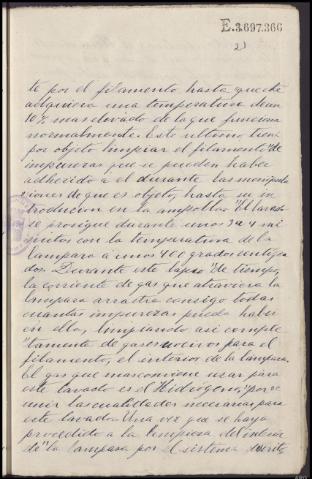 E.3.697.366
2)
te por el filamento hasta que éste
adquiera una temperatura de un
10% mas elevado de la que funciona
normalmente. Esto ultimo tiene
por objeto limpiar el filamento de
impurezas que se pueden haber
adherido a el durante las manipula
ciones de que es objeto, hasta su in
troduccion en la ampolla. El lavado
se prosigue durante unos 3 a 4 mi
nutos con la temperatura de la
lampara a unos 400 grados centigra
dos. Durante este lapso de tiempo,
la corriente de gas que atraviesa la
lampara arrastra consigo todas
cuantas impurezas pueda haber
en ella, limpiando asi comple
tamente de gases nocivos para el
filamento, el interior de la lampara.
El gas que mas conviene usar para
este lavado es el Hidrógeno, por
reunir las cualidades necesarias para
este lavado. Una vez que se haya
procedido a la limpieza del interior
de la lampara por el sistema descrito